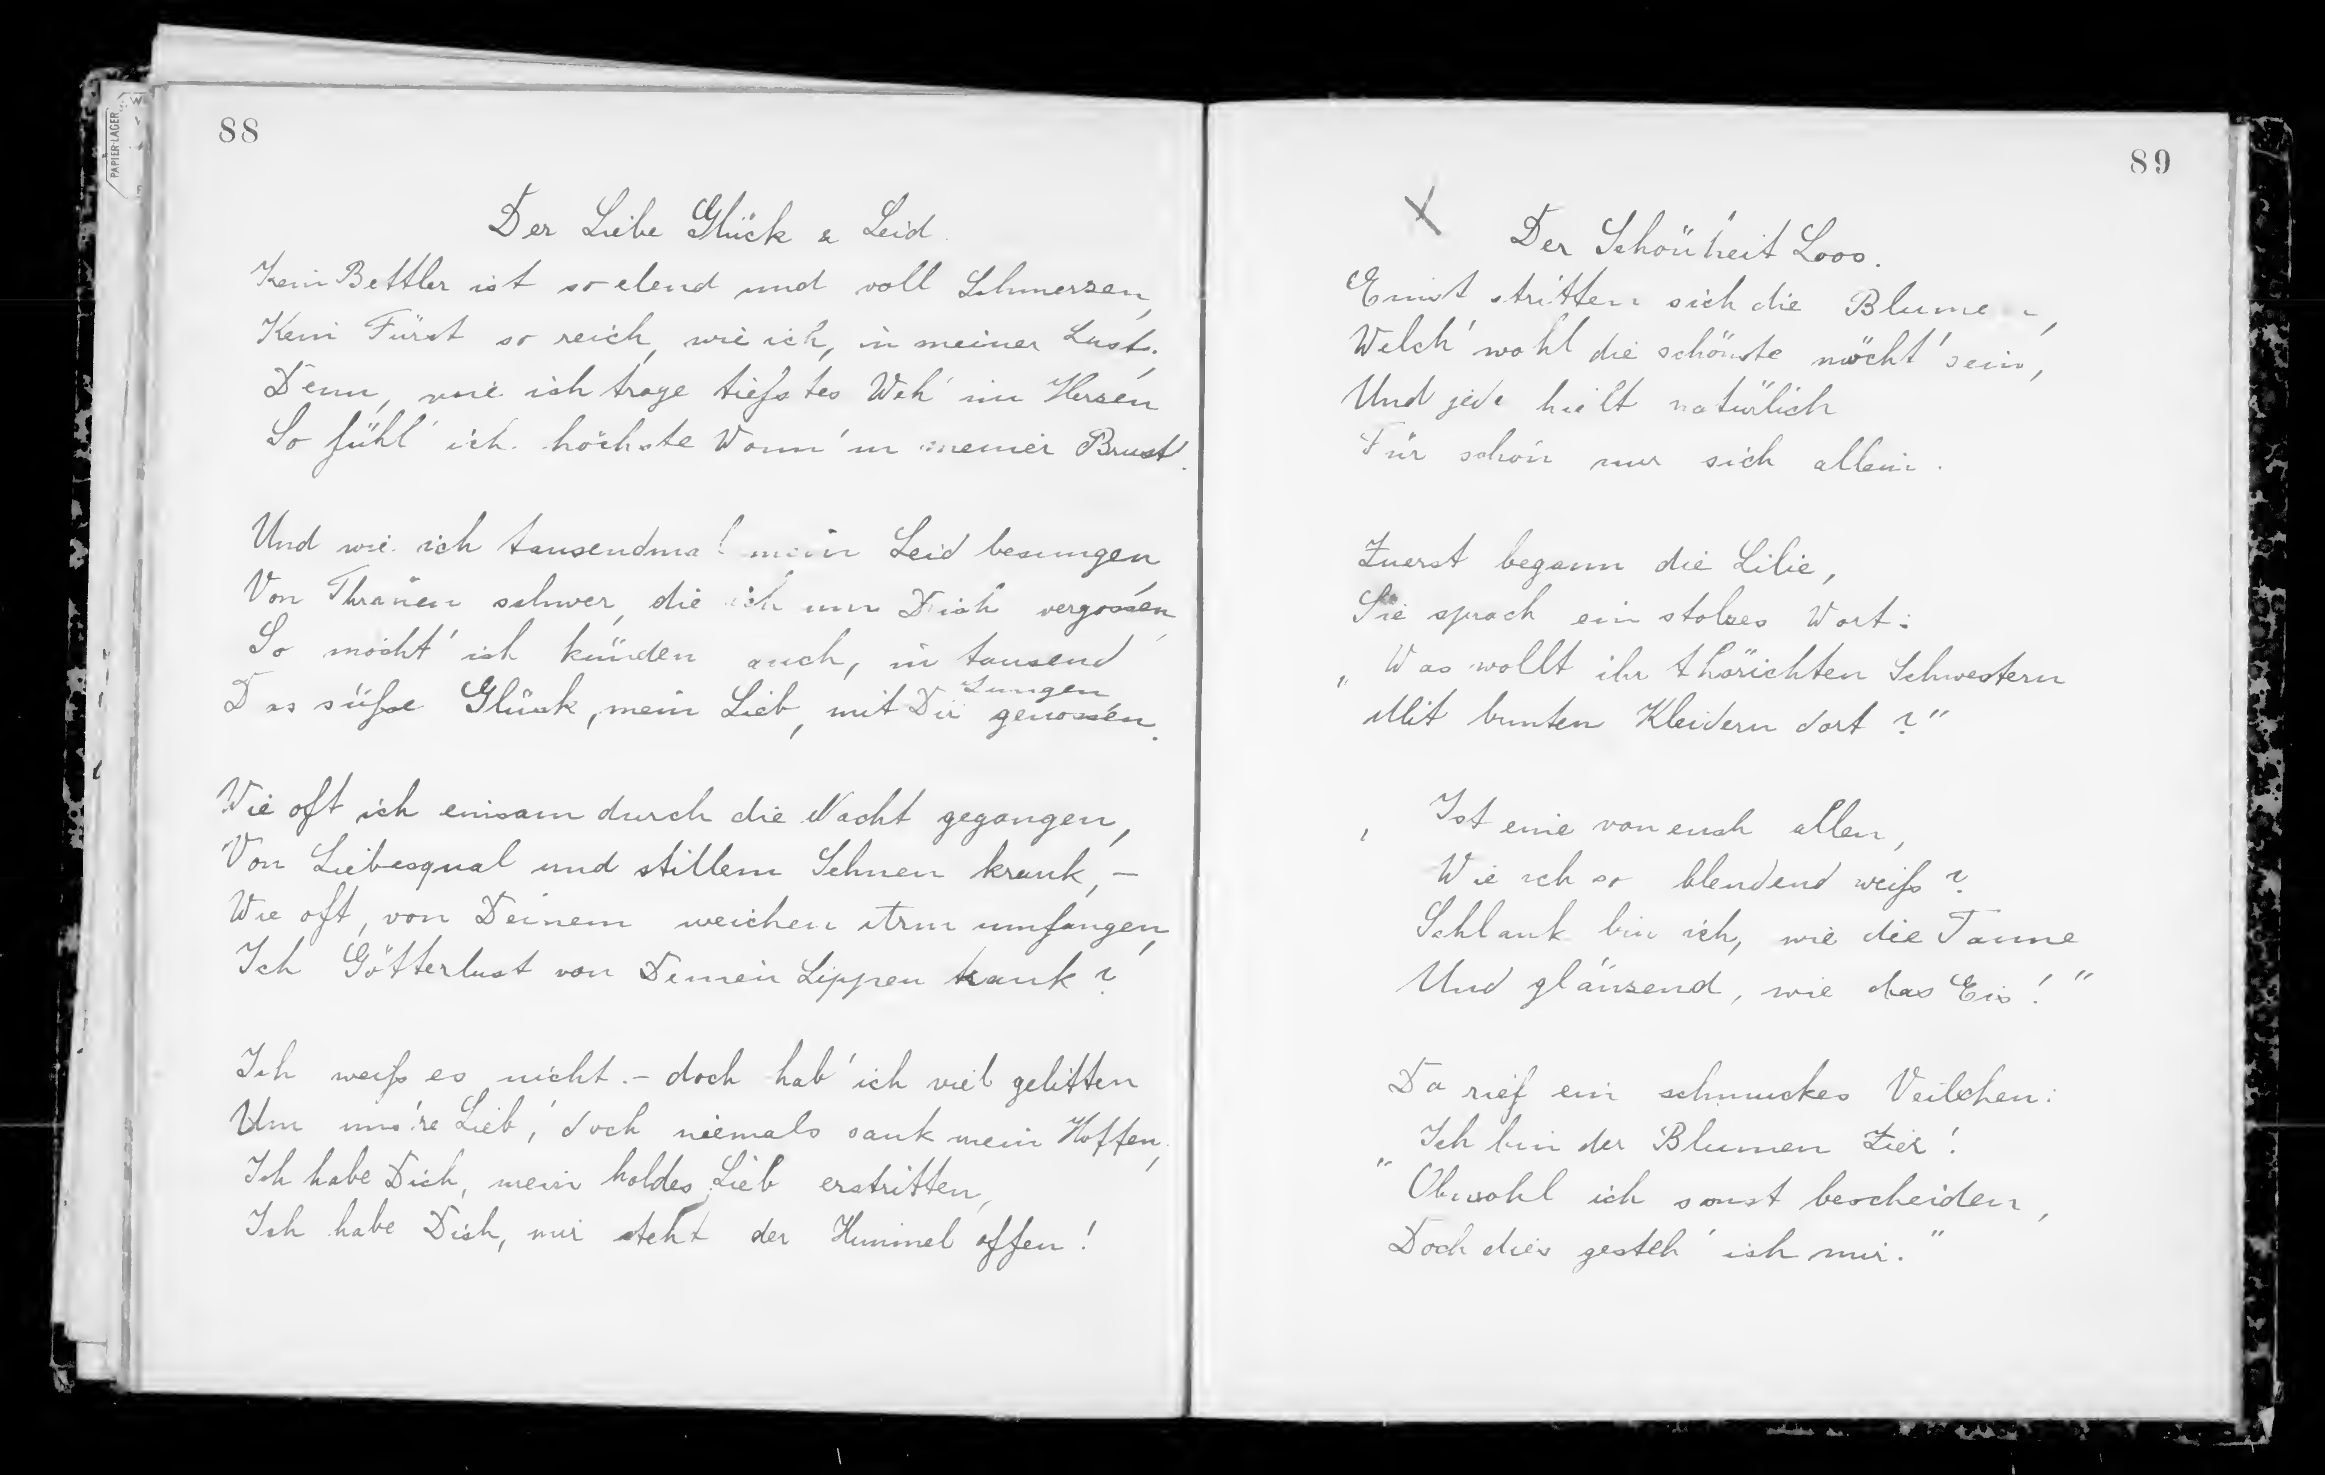 88
Der Liebe Glück & Leid.
Kein Bettler ist so elend und voll Schmerzen,
Kein Fürst so reich, wie ich, in meiner Lust,
Denn, wie ich trage tiefstes Weh' im Herzen
So fühl' ich höchste Wonn' in meiner Brust.
Und wie ich tausendmal mein Leid besungen
Von Thränen schwer, die ich um Dich vergossen,
So möcht' ich künden auch, in tausend
Zungen
Das süße Glück, mein Lieb, mit Dir genossen.
Wie oft ich einsam durch die Nacht gegangen,
Von Liebesqual und stillem Sehnen krank, –
Wie oft, von Deinem weichen Arm umfangen,
Ich Götterlust von Deinen Lippen trank?
Ich weiß es nicht. – doch hab' ich viel gelitten
Um uns're Lieb', doch niemals sank mein Hoffen,
Ich habe Dich, mein holdes Lieb erstritten,
Ich habe Dich, mir steht der Himmel offen!
PAPIER-LAGER
89
X
Der Schönheit Loos.
Einst stritten sich die Blumen,
Welch' wohl die schönste möcht' sein,
Und jede hielt natürlich
Für schön nur sich allein.
Zuerst begann die Lilie,
Sie sprach ein stolzes Wort:
„Was wollt ihr thörichten Schwestern
Mit bunten Kleidern dort?"
, Ist eine von euch allen,
Wie ich so blendend weiß?
Schlank bin ich, wie die Tanne
Und glänzend, wie das Eis!"
Da rief ein schmuckes Veilchen:
Ich bin der Blumen Zier!
"Obwohl ich sonst bescheiden,
Doch dies gesteh' ich mir."